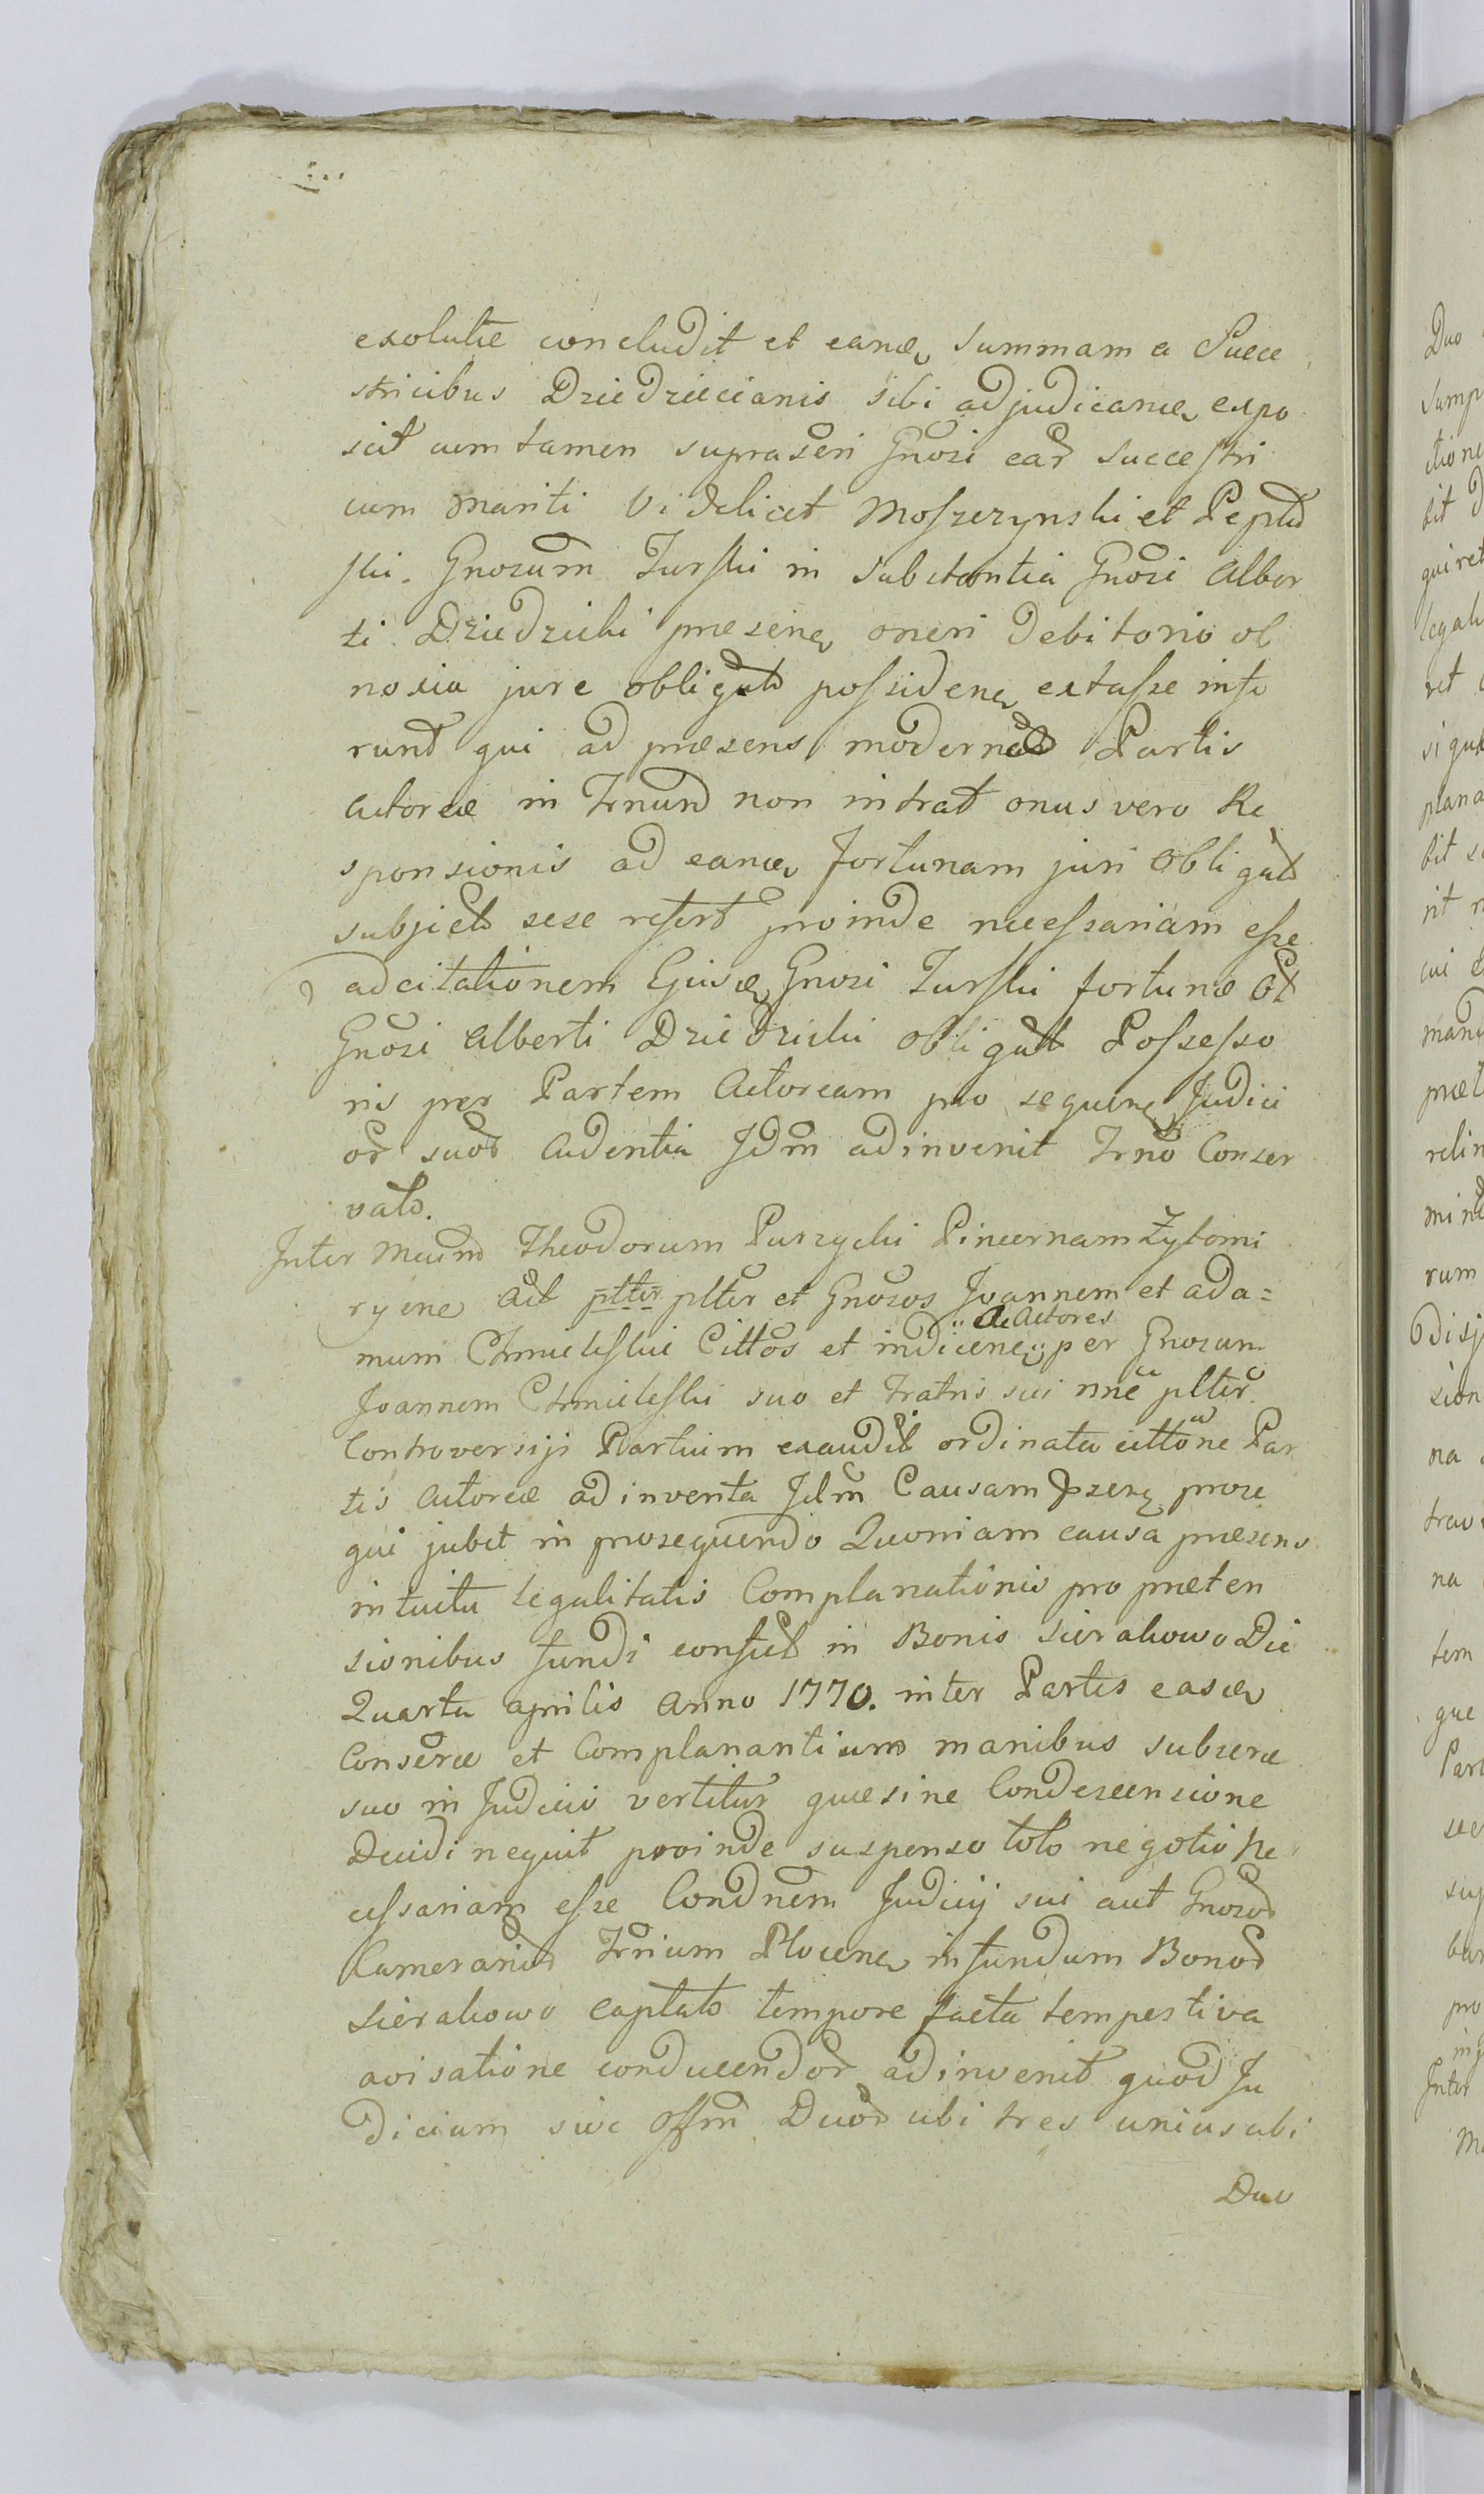 exolutæ concludit et eandæ summam a Succe
stricibus Dziedziccianis sibi adjudicandæ expo
scit cum tamen suprascri Gnosi ear Succestri
cum mariti Videlicet Moszczynski et Peplo
ski. Gnosum Turski in substantia Gnosi Alber
ti Dziedzicki præsene oneri debitorio ob
noxia jure obligato possidene extasse infe
runt qui ad præsens modernæ Partis
Actoreæ in Trnum non intrat onus vero Re
sponsionis ad eandæ fortunam juri obligato
subjecto sese refert proinde necessariam esse
adcitationem Ejusdæ Gnosi Turski fortunæ
Gnosi Alberti Dziedzicki obligat Possesso
ris per Partem Actoream pro sequene Judici
or suor Cadentia Jdm adinvenit Trno Conser
vato.
Inter Mcum Theodorum Purzycki Pincernam Żytomi
ryene Act pltter plter et Gnosos Joannem et Ada=
mum Chmielefskie Cittos et indicene per Gnosum
Ac Actores
Joannem Chmieleski suo et Fratris sui nne plter
Controversijs Partium exaudit ordinata cittone Par
tis Actoreæ adinventa Jdm Causam præsene prose
qui jubet in prosequendo Quoniam causa præsens
intuitu legalitatis Complanationis pro præten
sionibus fundi confect in Bonis Sierakowo Die
Quarta Aprilis Anno 1770. inter Partes easdæ
Conseræ et Complanantium manibus subscræ
suo in Judicio vertitur quæ sine Condescensione
Decidi nequit proinde suspenso toto negotio Ne
cessariam esse Condnem Judicij sui aut Gnosor
Camerarior Trrium Plocene in fundum Bonor
Sierakowo captato tempore facta tempestiva
avisatione conducendor adinvenit quod Ju
dicium sive Offm Duor ubi tres unius ubi
Duo